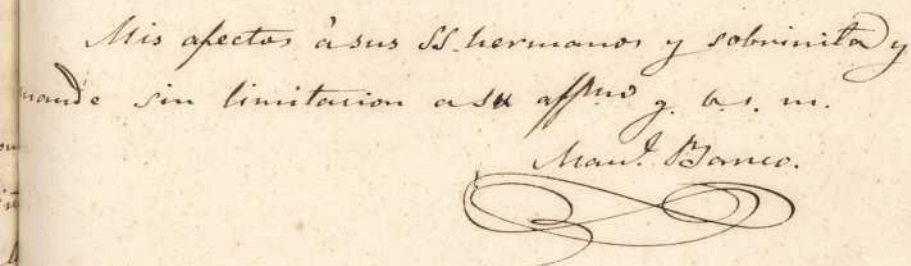 Mis afectos à sus SS. hermanos y sobrinita y
mande sin limitacion a su affmo q. b. s. m.
Manl. Banco.